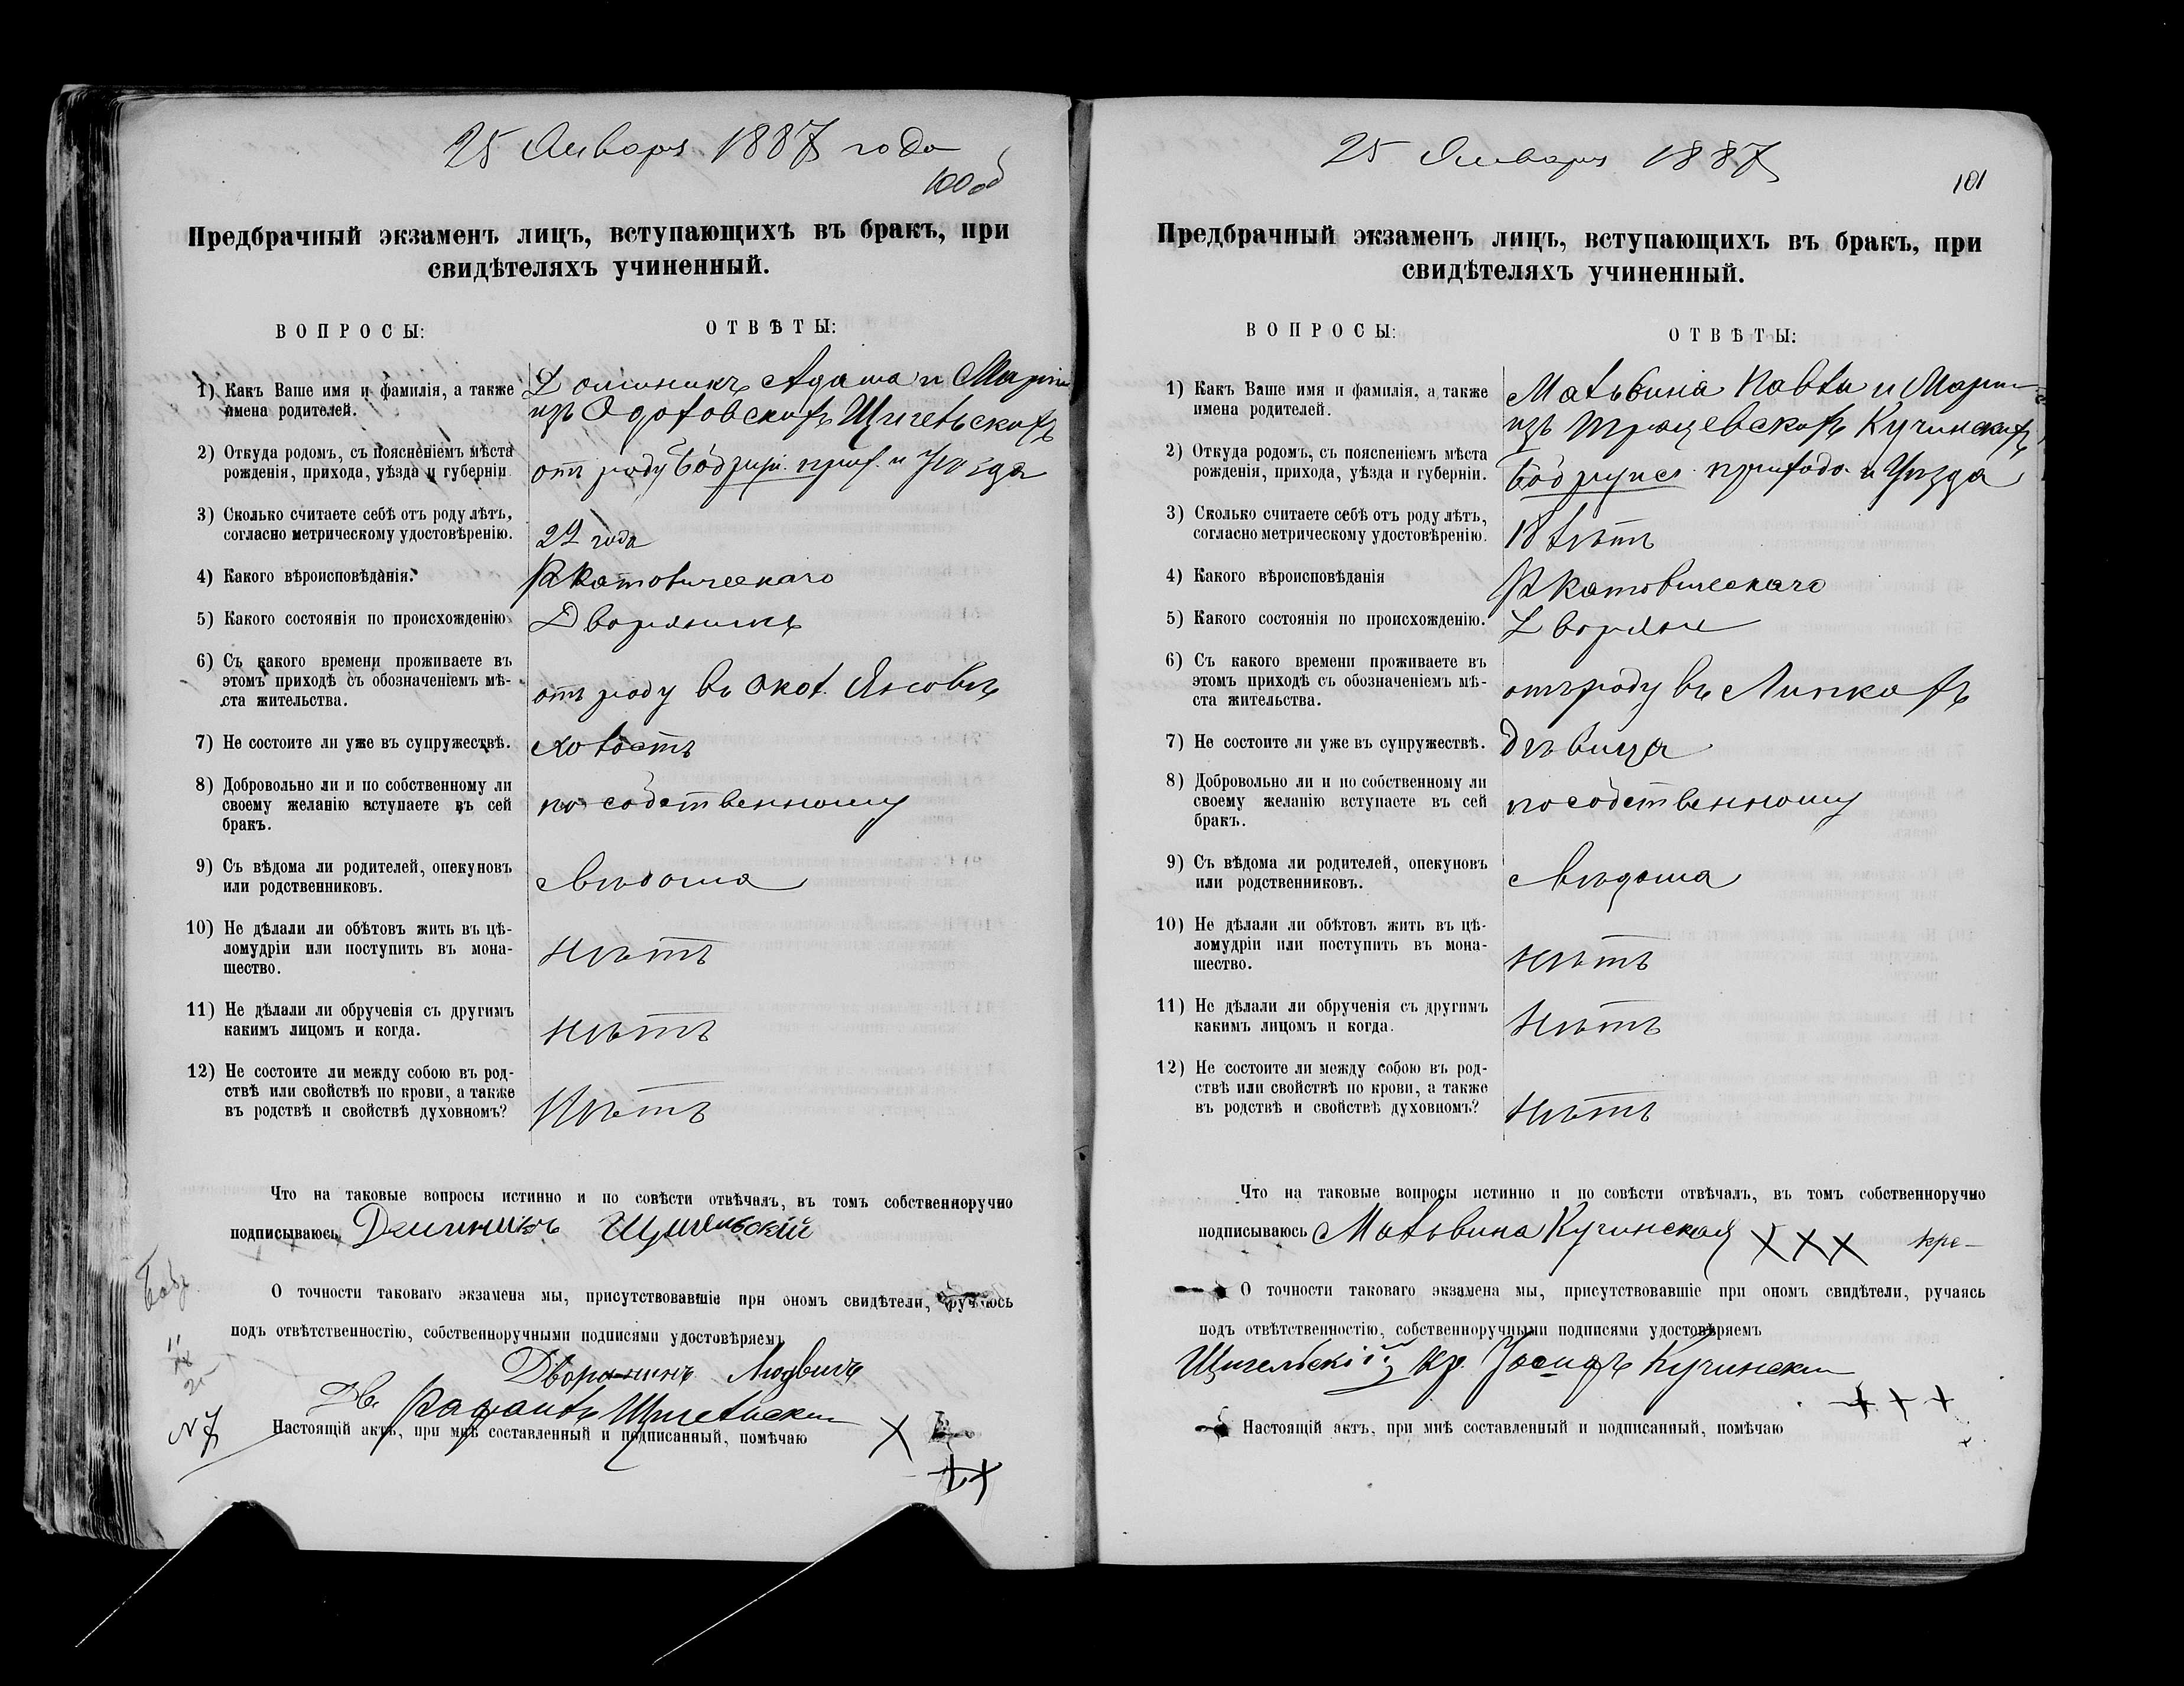 25 Января 1887 года
100 об
Предбрачный экзаменъ лицъ, вступающихъ въ бракъ, при
свидѣтеляхъ учиненный.
ВОПРОСЫ:
ОТВѢТЫ:
1) Какъ Ваше имя и фамилія, а также
имена родителей.
Доминикъ Адама и Маріи
изъ Щигельскихъ
2) Откуда родомъ, съ поясненіемъ мѣста
рожденія, прихода, уѣзда и губерніи.
отъ роду Бобруй. прих. и Уѣзда
3) Сколько считаете себѣ отъ роду лѣтъ,
согласно метрическому удостовѣренію.
года
4) Какого вѣроисповѣданія.
Р Католическаго
5) Какого состоянія по происхожденію.
Дворянинъ
6) Съ какого времени проживаете въ
этомъ приходѣ съ обозначеніемъ мѣ-
ста жительства.
отъ роду въ окол.
7) Не состоите ли уже въ супружествѣ.
холостъ
8) Добровольно ли и по собственному ли
своему желанію вступаете въ сей
бракъ.
по собственному
9) Съ вѣдома ли родителей, опекуновъ
или родственниковъ.
съ вѣдома
10) Не дѣлали ли обѣтовъ жить въ цѣ-
ломудріи или поступить въ мона-
шество.
нѣтъ
11) Не дѣлали ли обрученія съ другимъ
какимъ лицомъ и когда.
нѣтъ
12) Не состоите ли между собою въ род-
ствѣ или свойствѣ по крови, а также
въ родствѣ и свойствѣ духовномъ?
Нѣтъ
Что на таковые вопросы истинно и по совѣсти отвѣчалъ, въ томъ собственноручно
подписываюсь Доминикъ Щигельскій
О точности таковаго экзамена мы, присутствовавшіе при ономъ свидѣтели, ручаясь
подъ отвѣтственностію, собственноручными подписями удостовѣряемъ
Дворянинъ Людвигъ
Дв. Щигельски
Настоящій актъ, при мнѣ составленный и подписанный, помѣчаю
X
++
N 7
25 Января 1887
101
Предбрачный экзаменъ лицъ, вступающихъ въ бракъ, при
свидѣтеляхъ учиненный.
ВОПРОСЫ:
ОТВѢТЫ:
1) Какъ Ваше имя и фамилія, а также
имена родителей.
Мальвина Павла и Маріи
изъ Кучинскихъ
2) Откуда родомъ, съ поясненіемъ мѣста
рожденія, прихода, уѣзда и губерніи.
Бобруйск прихода и Уѣзда
3) Сколько считаете себѣ отъ роду лѣтъ,
согласно метрическому удостовѣренію.
18 лѣтъ
4) Какого вѣроисповѣданія
Р Католическаго
5) Какого состоянія по происхожденію.
Дворянс
6) Съ какого времени проживаете въ
этомъ приходѣ съ обозначеніемъ мѣ-
ста жительства.
отъ роду въ Липкахъ
7) Не состоите ли уже въ супружествѣ.
дѣвица
8) Добровольно ли и по собственному ли
своему желанію вступаете въ сей
бракъ.
по собственному
9) Съ вѣдома ли родителей, опекуновъ
или родственниковъ.
съ вѣдома
10) Не дѣлали ли обѣтовъ жить въ цѣ-
ломудріи или поступить въ мона-
шество.
нѣтъ
11) Не дѣлали ли обрученія съ другимъ
какимъ лицомъ и когда.
нѣтъ
12) Не состоите ли между собою въ род-
ствѣ или свойствѣ по крови, а также
въ родствѣ и свойствѣ духовномъ?
нѣтъ
Что на таковые вопросы истинно и по совѣсти отвѣчалъ, въ томъ собственноручно
подписываюсь Мальвина Кучинская XXX кре-
О точности таковаго экзамена мы, присутствовавшіе при ономъ свидѣтели, ручаясь
подъ отвѣтственностію, собственноручными подписями удостовѣряемъ
Щигельскій кр. Кучински
+++
Настоящій актъ, при мнѣ составленный и подписанный, помѣчаю